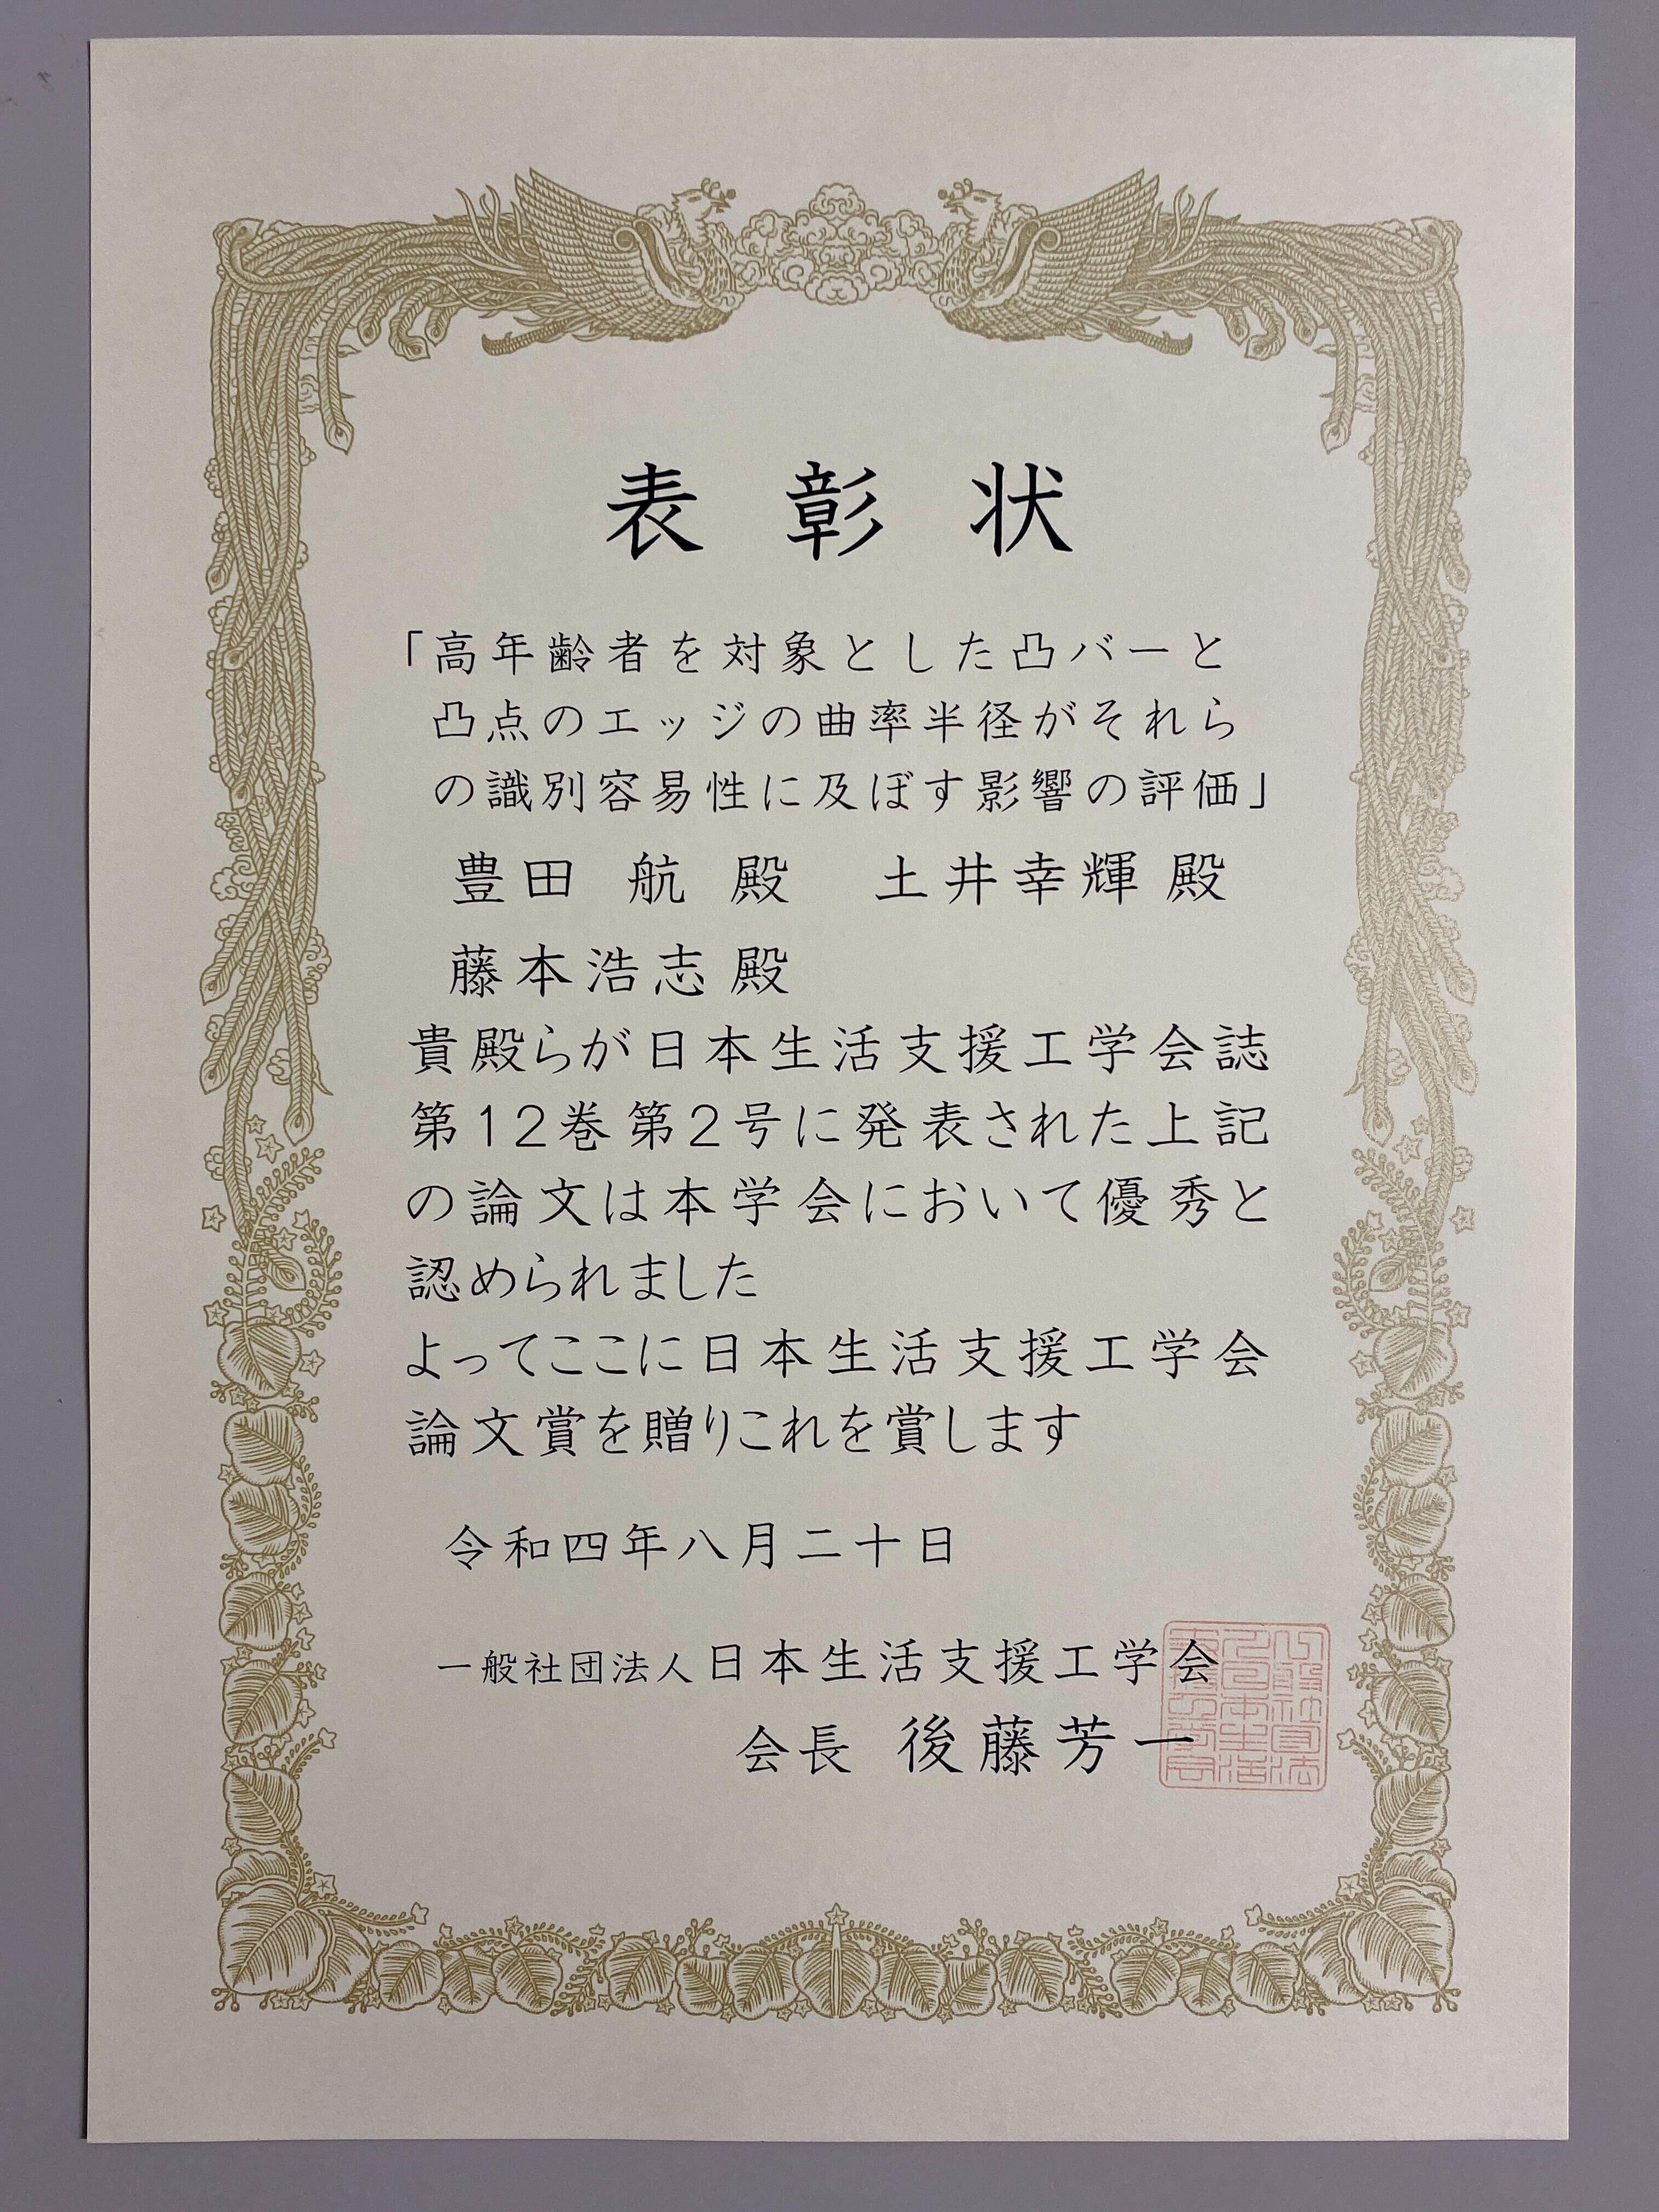 表彰状
「高年齢者を対象とした凸バーと
凸点のエッジの曲率半径がそれら
の識別容易性に及ぼす影響の評価」
豊田 航 殿 土井幸輝 殿
藤本浩志 殿
貴殿らが日本生活支援工学会誌
第12巻第2号に発表された上記
の論文は本学会において優秀と
認められました
よってここに日本生活支援工学会
論文賞を贈りこれを賞します
令和四年八月二十日
一般社団法人日本生活支援工学会
会長 後藤芳一